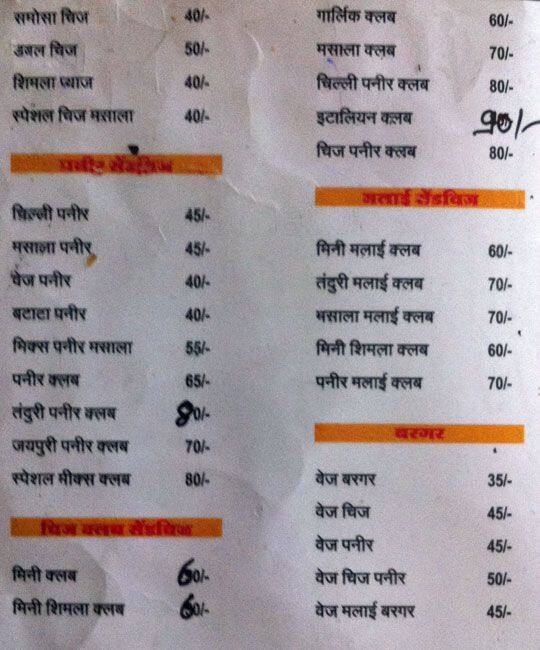 समोसा चिज 40/-
डबल चिज 50/-
शिमला प्याज 40/-
स्पेशल चिज मसाला 40/-
पनीर सेंडविज
चिल्ली पनीर 45/-
मसाला पनीर 45/-
वेज पनीर 40/-
बटाटा पनीर 40/-
मिक्स पनीर मसाला 55/-
पनीर क्लब 65/-
तंदुरी पनीर क्लब 80/-
जयपुरी पनीर क्लब 70/-
स्पेशल मीक्स क्लब 80/-
चिज क्लब सेंडविज
मिनी क्लब 60/-
मिनी शिमला क्लब 60/-
गार्लिक क्लब 60/-
मसाला क्लब 70/-
चिल्ली पनीर क्लब 80/-
इटालियन क्लब 90/-
चिज पनीर क्लब 80/-
मलाई सेंडविज
मिनी मलाई क्लब 60/-
तंदुरी मलाई क्लब 70/-
मसाला मलाई क्लब 70/-
मिनी शिमला क्लब 60/-
पनीर मलाई क्लब 70/-
बरगर
वेज बरगर 35/-
वेज चिज 45/-
वेज पनीर 45/-
वेज चिज पनीर 50/-
वेज मलाई बरगर 45/-